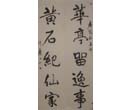 華亭留逸事
黃石紀仙家